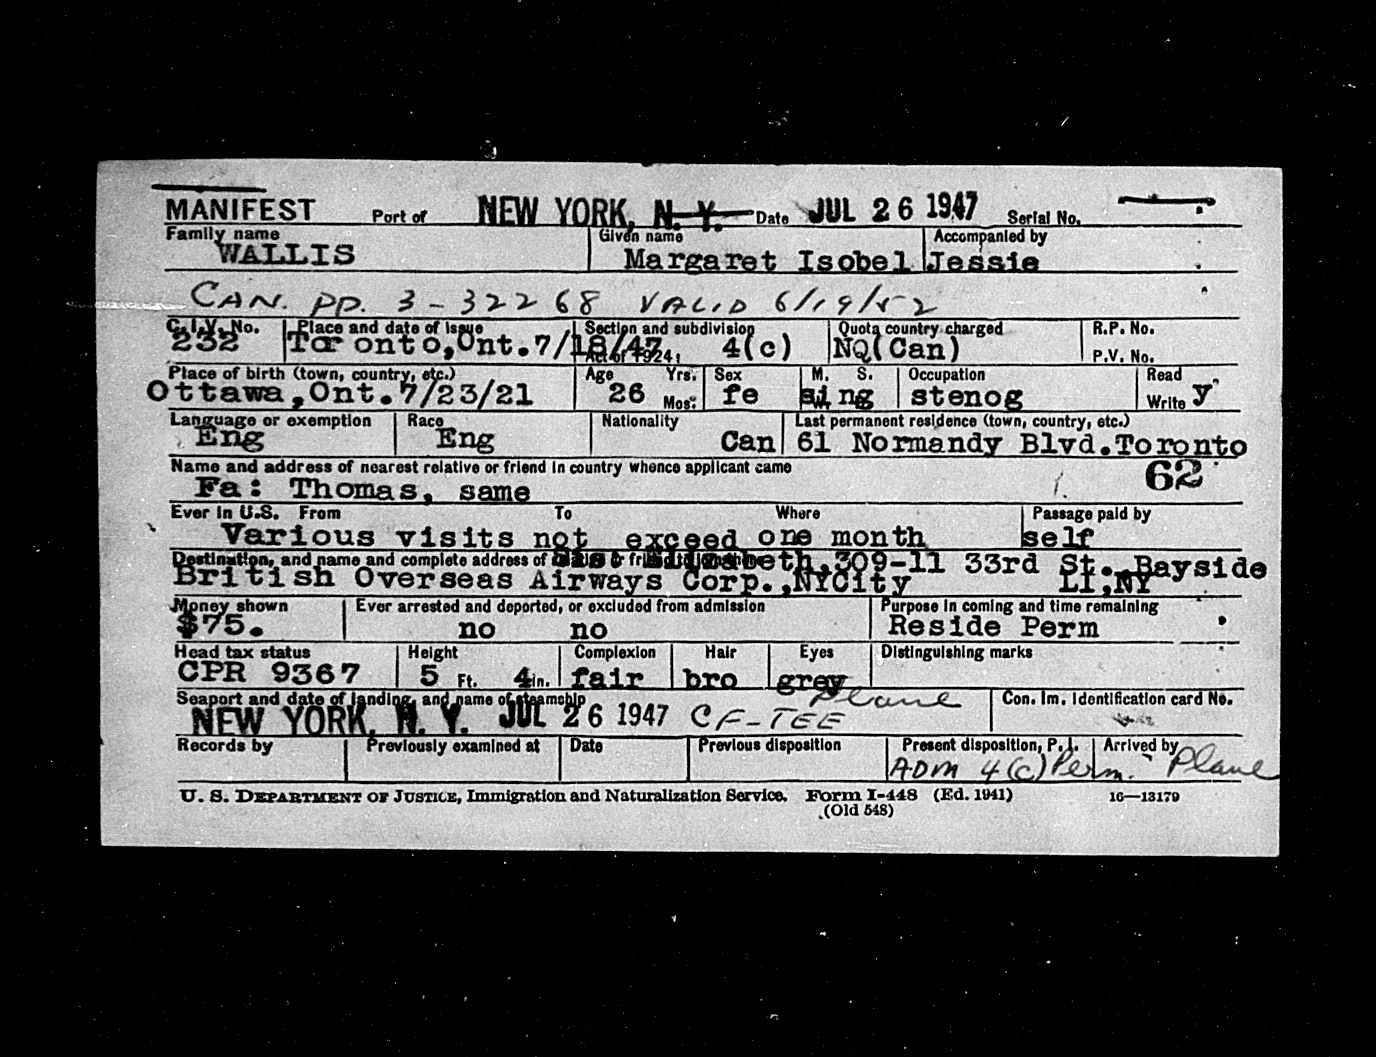 MANIFEST Port of NEW YORK, N. Y. Date JUL 26 1947 Serial No.
Family name Given name Accompanied by
WALLIS Margaret Isobel Jessie
CAN. PP. 3-32268 VALID 6/19/52
C.I.V. No. Place and date of issue Section and subdivision Quota country charged R.P. No.
232 Toronto,Ont.7/18/47 Act of 1924, 4(c) NQ(Can) P.V. No.
Place of birth (town, country, etc.) Age Yrs. Sex M. S. Occupation Read
Ottawa,Ont.7/23/21 26 Mos. fe sing stenog Write y
Language or exemption Race Nationality Last permanent residence (town, country, etc.)
Eng Eng Can 61 Normandy Blvd.Toronto
Name and address of nearest relative or friend in country whence applicant came 62
Fa: Thomas, same
Ever in U.S. From To Where Passage paid by
Various visits not exceed one month self
Destination, and name and complete address of Elizabeth,309-11 33rd St.,Bayside
British Overseas Airways Corp.,NYCity LI,NY
Money shown Ever arrested and deported, or excluded from admission Purpose in coming and time remaining
$75. no no Reside Perm
Head tax status Height Complexion Hair Eyes Distinguishing marks
CPR 9367 5 Ft. 4 in. fair bro grey
Seaport and date of landing, and name of steamship Plane Con. Im. Identification card No.
NEW YORK, N. Y. JUL 26 1947 CF-TEE
Records by Previously examined at Date Previous disposition Present disposition, P. I. Arrived by
ADM 4(c) Perm. Plane
U. S. DEPARTMENT OF JUSTICE, Immigration and Naturalization Service. Form I-448 (Ed. 1941) 16—13179
(Old 548)